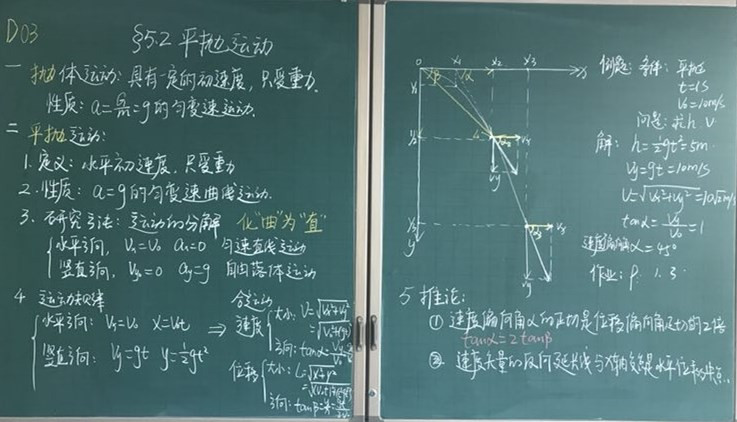 D03
§5.2 平抛运动
一 抛体运动：具有一定的初速度，只受重力.
性质：a=G/m=g的匀变速运动.
二 平抛运动：
1. 定义：水平初速度，只受重力
2. 性质：a=g的匀变速曲线运动.
3. 研究方法：运动的分解 化"曲"为"直"
水平方向，Vx=V0 ax=0 匀速直线运动
竖直方向，Vy=0 ay=g 自由落体运动
4 运动规律
水平方向：Vx=V0 X=V0t ⇒
竖直方向：Vy=gt y=½gt²
合运动
速度
大小：V=√(Vx²+Vy²)
方向：tanα=
位移
大小：L=√(x²+y²)
方向：tanβ=
0 X1 X2 X3 X
y1
y2
y3
y
β
α
Vy
Vx
Vy
例题：条件：平抛
t=1s
V0=10m/s
问题：求h V
解：h=½gt²=5m
Vy=gt=10m/s
V=√(Vx²+Vy²)=10√2m/s
tanα=Vy/V0=1
速度偏向角α=45°
作业：P. 1. 3
5 推论：
① 速度偏向角α的正切是位移偏向角正切的2倍
tanα=2tanβ
② 速度矢量的反向延长线与X轴的交点是水平位移的中点.